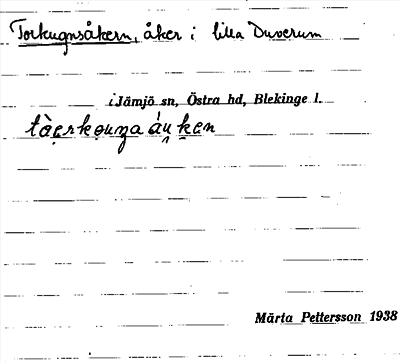 Torkugnsåkern, åker i lilla Duverum
i Jämjö sn, Östra hd, Blekinge l.
Märta Pettersson 1938